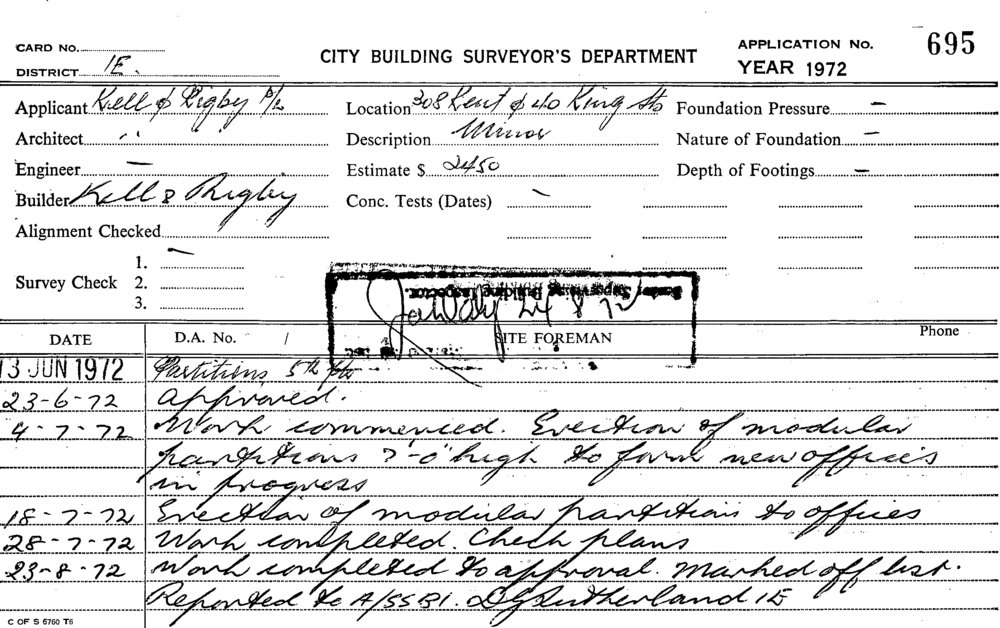 CARD No.
CITY BUILDING SURVEYOR'S DEPARTMENT
APPLICATION No. 695
DISTRICT 1E.
YEAR 1972
Applicant Kell & Rigby P/L
Location 308 Kent & 40 King Sts
Foundation Pressure —
Architect "
Description Minor
Nature of Foundation —
Engineer —
Estimate $ 2450
Depth of Footings —
Builder Kell & Rigby
Conc. Tests (Dates) —
Alignment Checked
Survey Check
1. —
2.
3.
Senior Supervising Building Inspector.
24 8 72
DATE
D.A. No. /
SITE FOREMAN
Phone
13 JUN 1972 Partitions, 5th
23-6-72 Approved.
4-7-72 Work commenced. Erection of modular
partitions 7'-0" high to form new offices
in progress
18-7-72 Erection of modular partitions to offices
28-7-72 Work completed. Check plans
23-8-72 Work completed to approval. Marked off list.
Reported to A/SSBI. D Sutherland 1E
C OF S 6760 T6